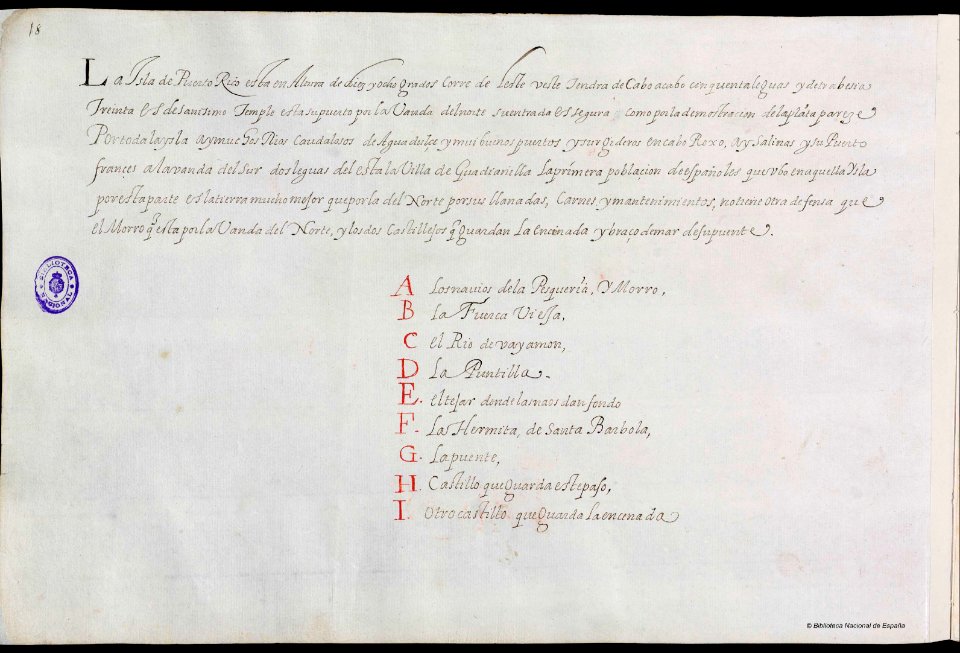 18
La Isla de Puerto Rico esta en Altura de diez y ocho grados corre de leste veste Tendra de Cabo acabo cinquenta leguas y de trabesia
Treinta es de sanisimo Temple esta su puerto por la Vanda del norte su entrada es segura, como por la demostracion de la plāta pareze
Por toda la ysla ay muchos Rios Caudalosos de Agua dulce y mui buenos puertos y surgideros en cabo Roxo, Ay Salinas y su Puerto
frances a la vanda del Sur dos leguas del esta la Villa de Guadianilla la primera poblacion de españoles que vbo en aquella ysla
por esta parte es la tierra mucho mejor que por la del Norte por sus llanadas, Carnes y mantenimientos, no tiene otra defensa que
el Morro q̄ esta por la Vanda del Norte, y los dos Castillejos q̄ guardan La encinada y braço de mar de su puente.
BIBLIOTECA NACIONAL
A Los navios de la Pesqueria, Y Morro,
B La Fuerca Vieja,
C el Rio de vayamon,
D La Puntilla.
E. el tejar donde las naos dan fondo
F. La Hermita, de Santa Barbola,
G. La puente,
H. Castillo que guarda este paso,
I. Otro castillo que guarda la encenada
© Biblioteca Nacional de España